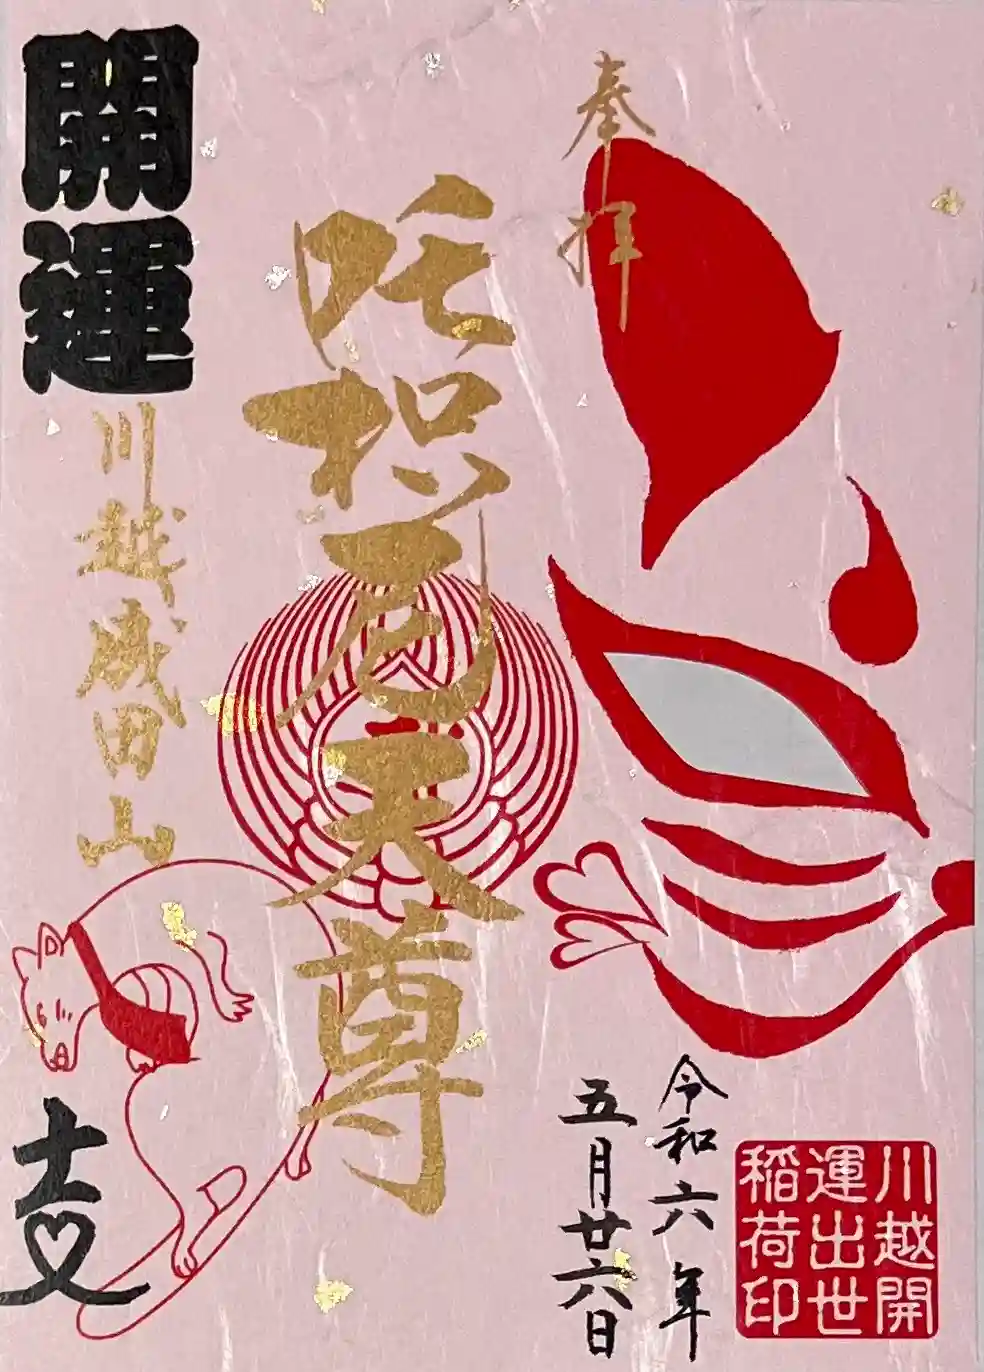 奉拝
令和六年
五月廿六日
川越開
運出世
稲荷印
吒枳尼天尊
開運
川越成田山
吉